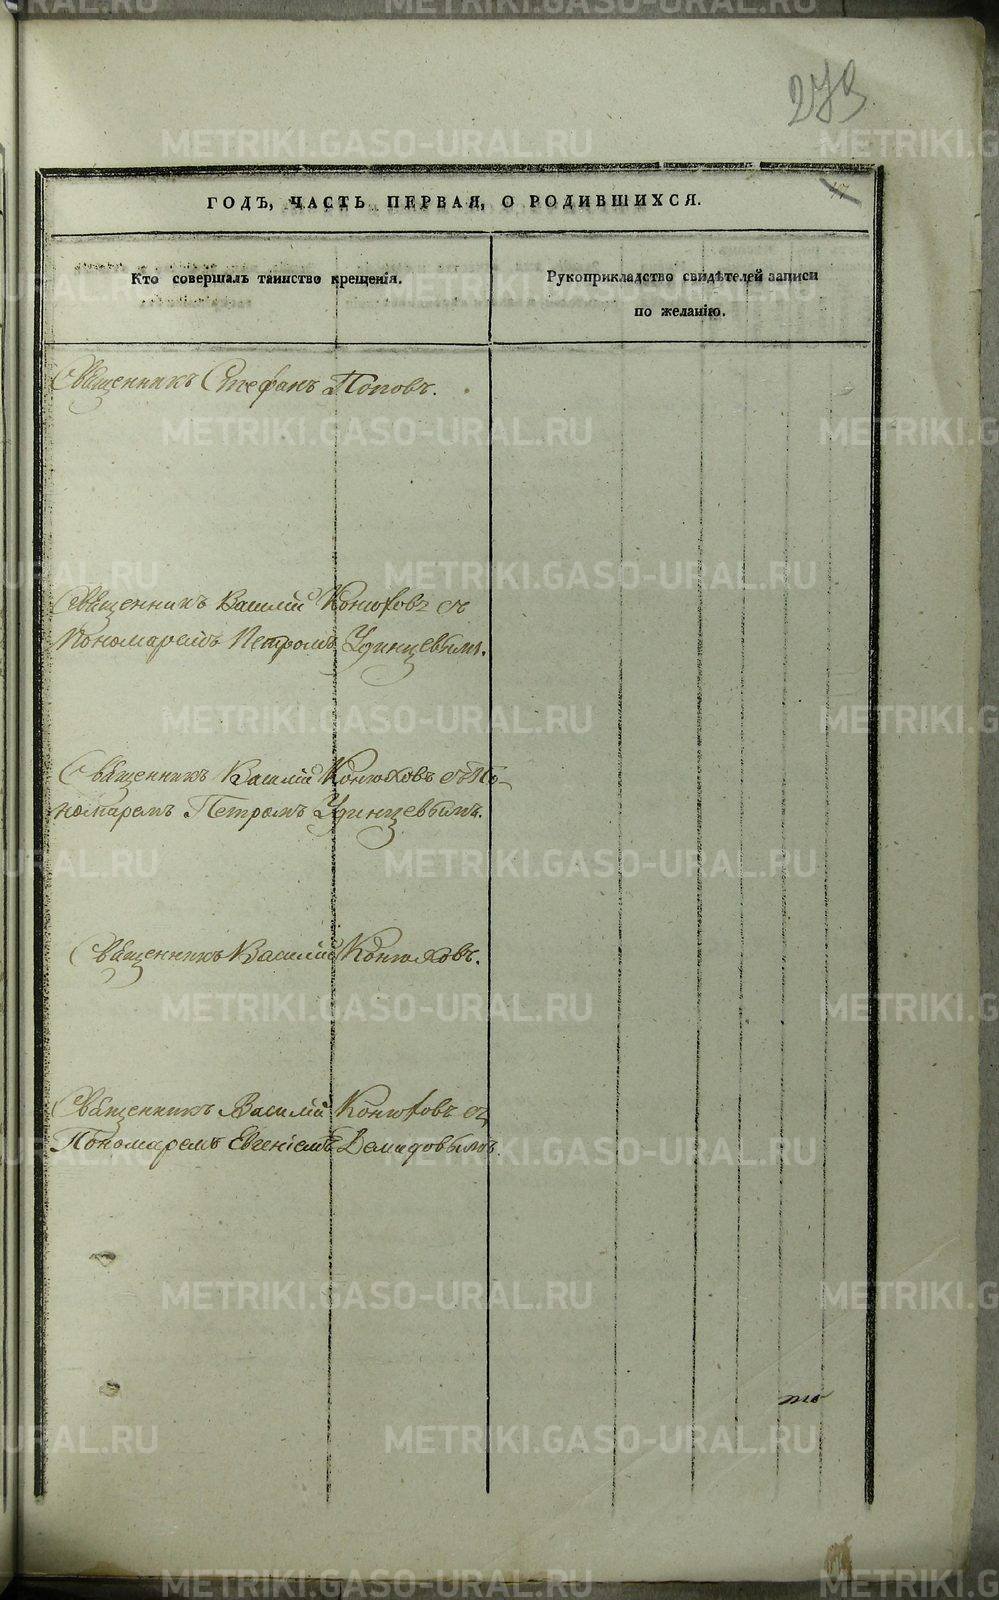 273
17
ГОДЪ, ЧАСТЬ ПЕРВАЯ, О РОДИВШИХСЯ.
Кто совершалъ таинство крещенія.
Рукоприкладство свидѣтелей записи
по желанію.
Священникъ Стефанъ Поповъ.
Священникъ Василій Конюховъ съ
Пономаремъ Петромъ Удинцевымъ.
Священникъ Василій Конюховъ съ По-
номаремъ Петромъ Удинцевымъ.
Священникъ Василій Конюховъ.
Священникъ Василій Конюховъ съ
Пономаремъ Евгеніемъ Демидовымъ.
METRIKI.GASO-URAL.RU